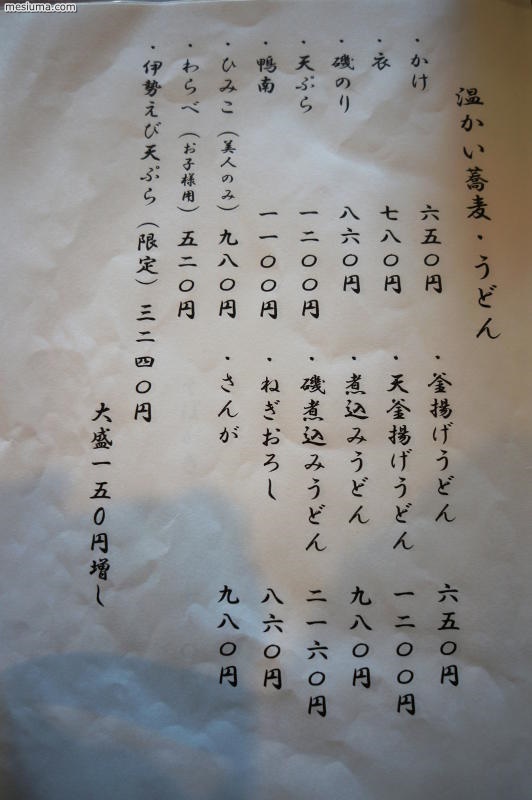 mesiuma.com
温かい蕎麦・うどん
・かけ 六五〇円
・衣 七八〇円
・磯のり 八六〇円
・天ぷら 一二〇〇円
・鴨南 一一〇〇円
・ひみこ(美人のみ) 九八〇円
・わらべ(お子様用) 五二〇円
・伊勢えび天ぷら(限定) 三二四〇円
・釜揚げうどん 六五〇円
・天釜揚げうどん 一二〇〇円
・煮込みうどん 九八〇円
・磯煮込みうどん 二一六〇円
・ねぎおろし 八六〇円
・さんが 九八〇円
大盛一五〇円増し